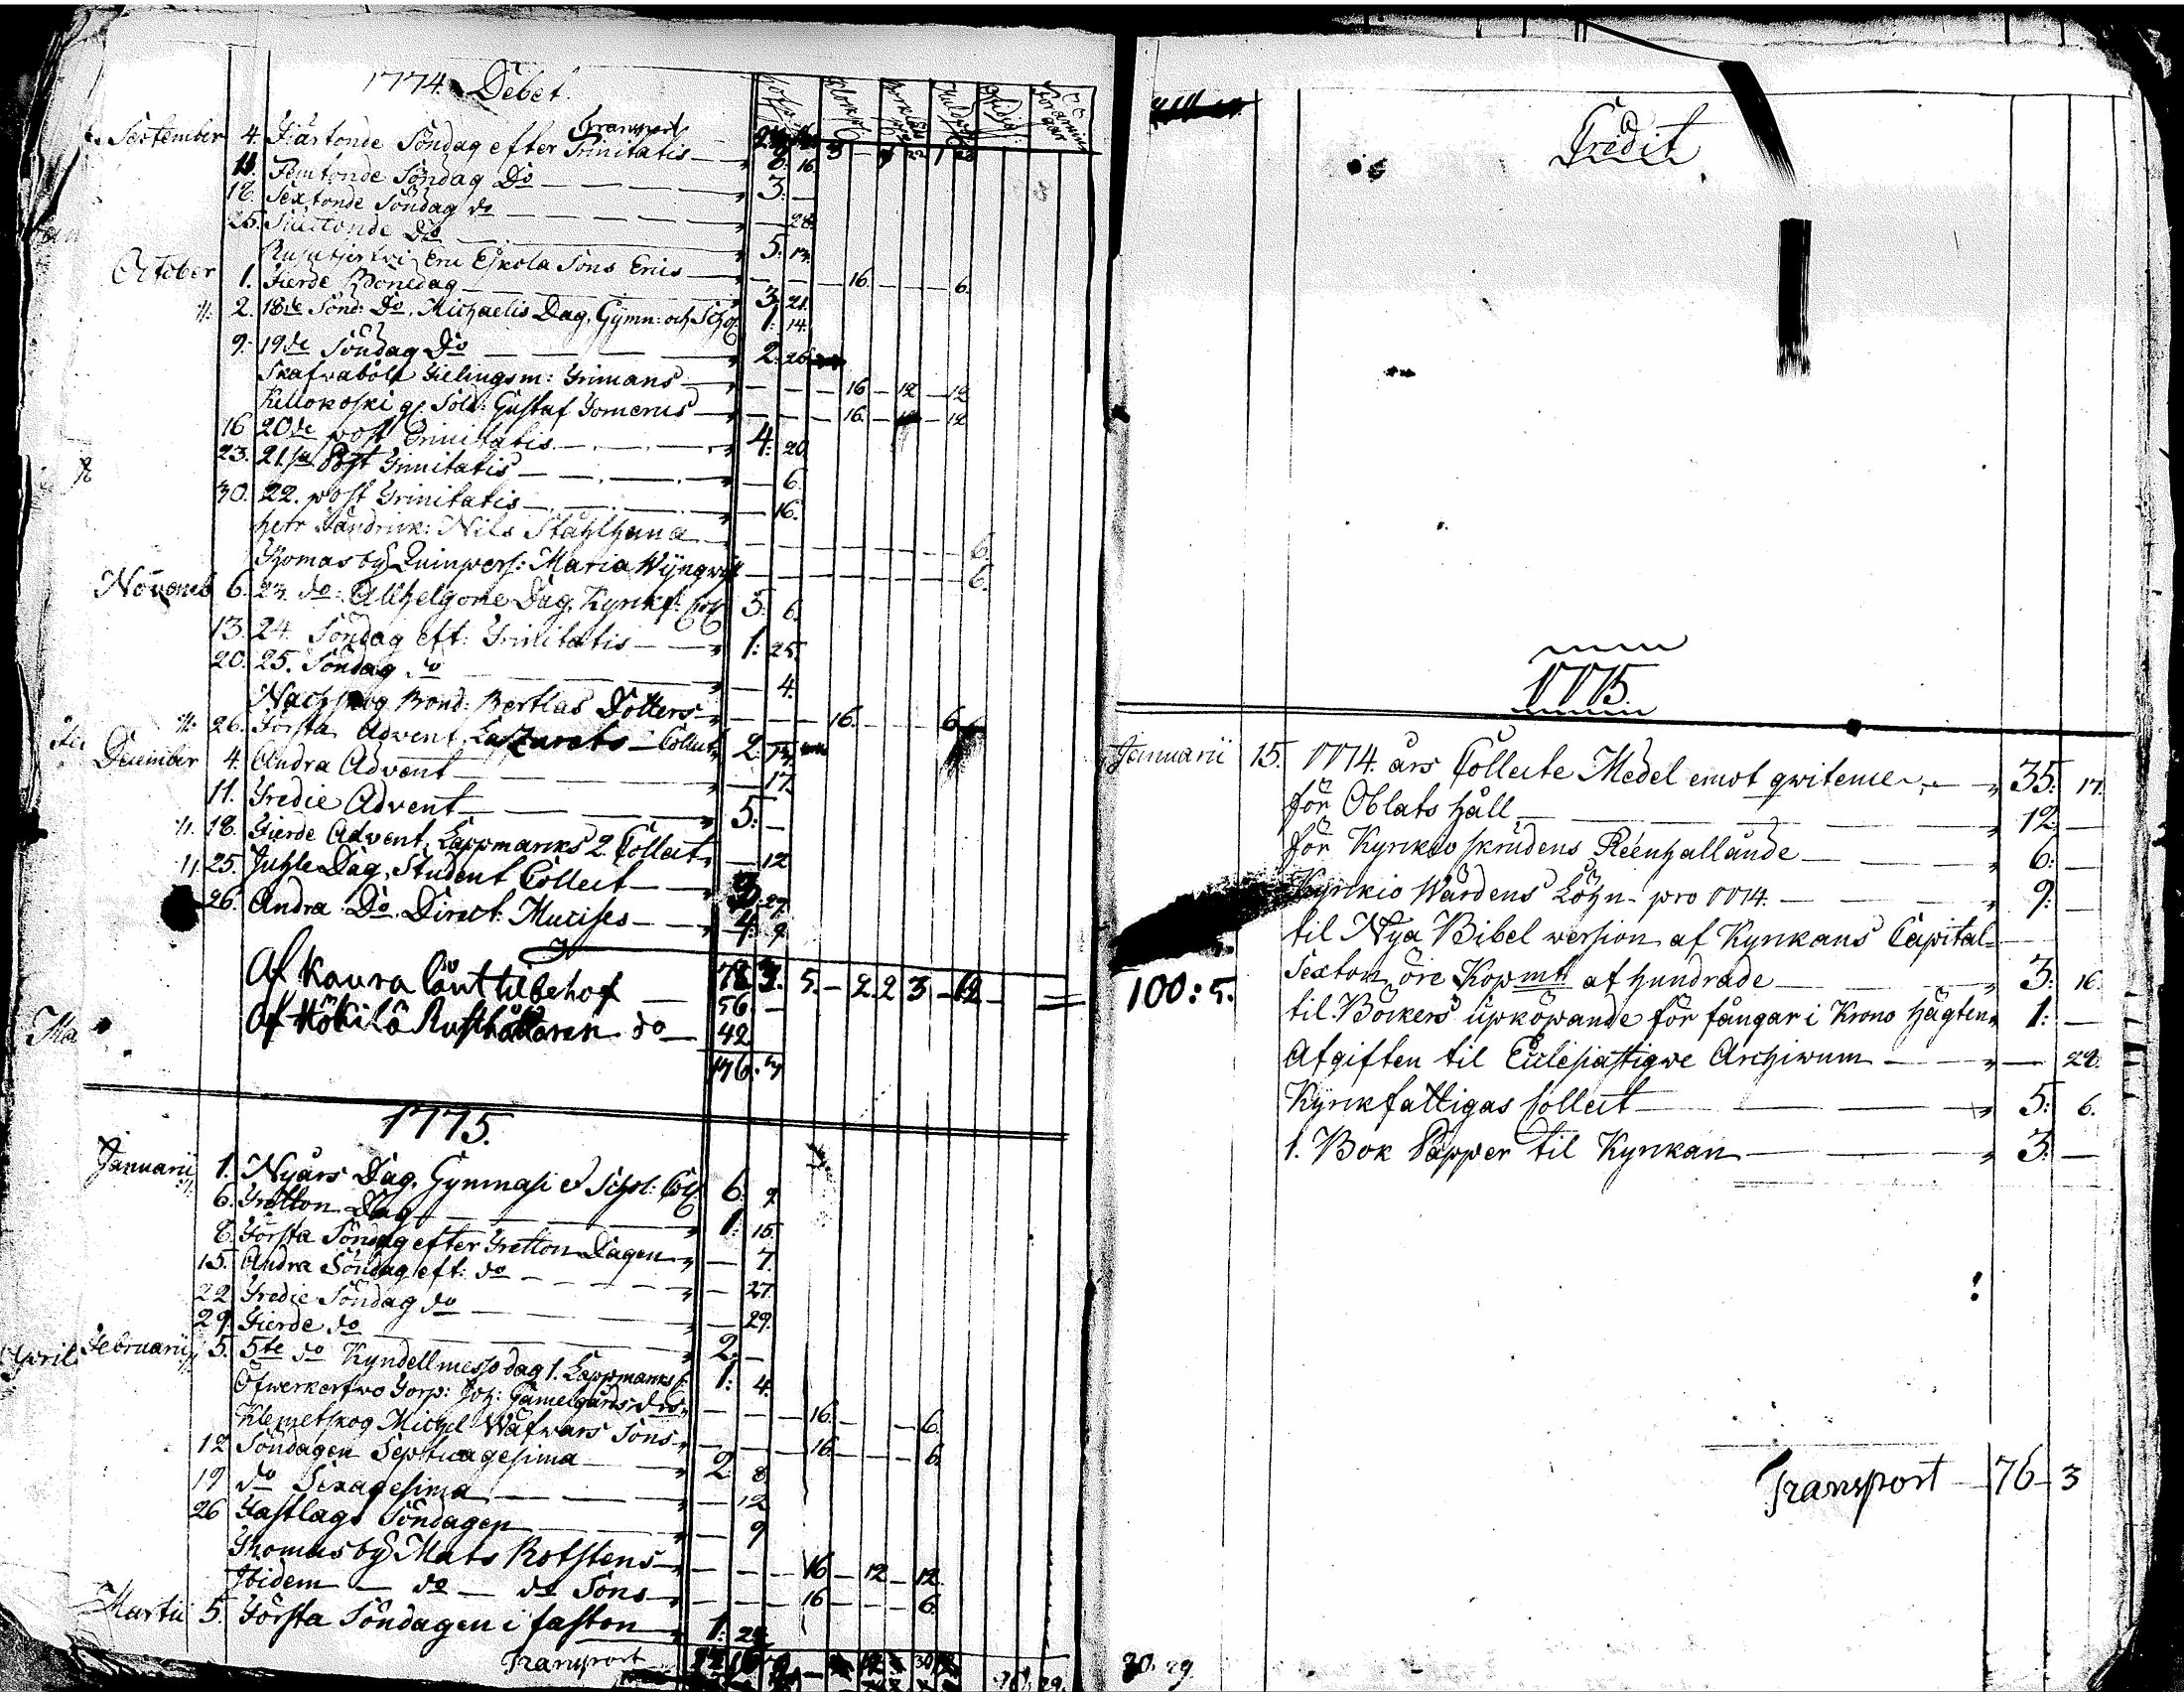 1774. Debet.
Transport
September 4. Fiortonde Söndag efter Trinitatis 8: 16.
11. Femtonde Söndag Do 3: —
18. Sextonde Söndag do — 28.
25. Siuttonde Do 5: 13.
Eri Eskola Sons Eriis — — — 16. — — 6.
October 1. Fierde Bönedag 3: 21.
2. 18de Sönd: Do. Michaelis Dag, Gymn: och Schol: 1: 14.
9. 19de Söndag Do 2: 26.
Skafvaböle Gielingsm: Grimans — — — 16 — 12 — 12
Kellokoski Sold: Gustaf — — — 16. — — 12
16 20de post Trinitatis 4: 20.
23. 21sta Post Trinitatis — 6.
30. 22. post Trinitatis — 16.
Nils Stahlhana 6.
Thomasby Quinpers: Maria 6.
Novemb 6. 23. do: Allhelgone Dag, Kyrkf: Coll 5: 6.
13. 24. Söndag eft: Trinitatis 1: 25.
20. 25. Söndag do — 4.
Bond: Bertlas Dotters — — — 16. — — 6
26. Första Advent, Lazarets Collect 2:
December 4. Andra Advent — 17.
11. Tredie Advent 5: —
18. Fierde Advent, Lappmarks 2. Collect — 12
25. Juhle Dag, Student Collect 27.
26. Andra Do. Direct: Musices 4: 9.
78. 3. 5. — 2. 2 3 — 12 —
Af Kaura lånt til behof 56. —
Af Hökilä Rusthållaren do 42
176. 3
1775.
Januarii 1. Nyårs Dag, Gymnasi & Schol: Coll 6: 9.
6. Tretton Dag 1: 15.
8. Första Söndag efter Tretton Dagen — 7.
15. Andra Söndag eft: do — 27.
22 Tredie Söndag do — 29.
29. Fierde do 2. —
Februarii 5. 5te do Kyndellmesso dag 1. Lappmarks: 1: 4.
Torp: Joh: — — — 16. — — 6.
Klemetskog Michel Wäfvars Sons — — — 16. — — 6.
12 Söndagen Septuagesima 2: 8
19 do Sexagesima — 12
26 Fastlags Söndagen — 9
Thomasby Mats Rotstens — — — 16 — 12 — 12.
Ibidem — do — do Sons — — — 16 — — 6.
Martii 5. Första Söndagen i faston 1: 24
Transport
April
Credit
1775.
Januarii 15. 1774. års Collecte Medel emot qwitence 35: 17.
för Oblats håll 12 —
för Kyrkio skrudens Reenhallande 6: —
Kyrkio Wärdens Löhn pro 1774. 9: —
til Nya Bibel version af Kyrkans Capital
100: 5. Sexton öre Kopmt: af hundrade 3: 16.
til Böckers upköpande för fångar i Krono Hägten 1: —
Afgiften til Ecclesiastiqve Archivum — 22.
Kyrkfattigas Collect 5: 6.
1. Bok Papper til Kyrkan 3: —
Transport 76 — 3
30. 29.